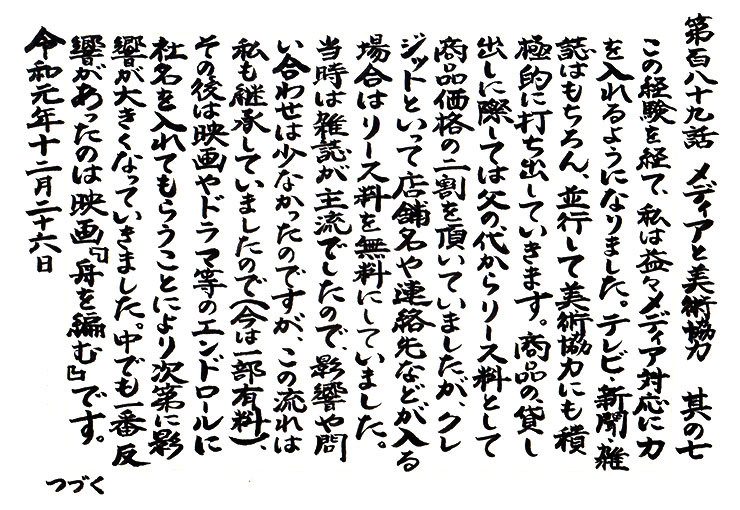 第百八十九話　メディアと美術協力　其の七
この経験を経て、私は益々メディア対応に力
を入れるようになりました。テレビ・新聞・雑
誌はもちろん、並行して美術協力にも積
極的に打ち出していきます。商品の貸し
出しに際しては父の代からリース料として
商品価格の二割を頂いていましたが、クレ
ジットといって店舗名や連絡先などが入る
場合はリース料を無料にしていました。
当時は雑誌が主流でしたので、影響や問
い合わせは少なかったのですが、この流れは
私も継承していましたので（今は一部有料）、
その後は映画やドラマ等のエンドロールに
社名を入れてもらうことにより次第に影
響が大きくなっていきました。中でも一番反
響があったのは映画『舟を編む』です。
令和元年十二月二十六日
つづく